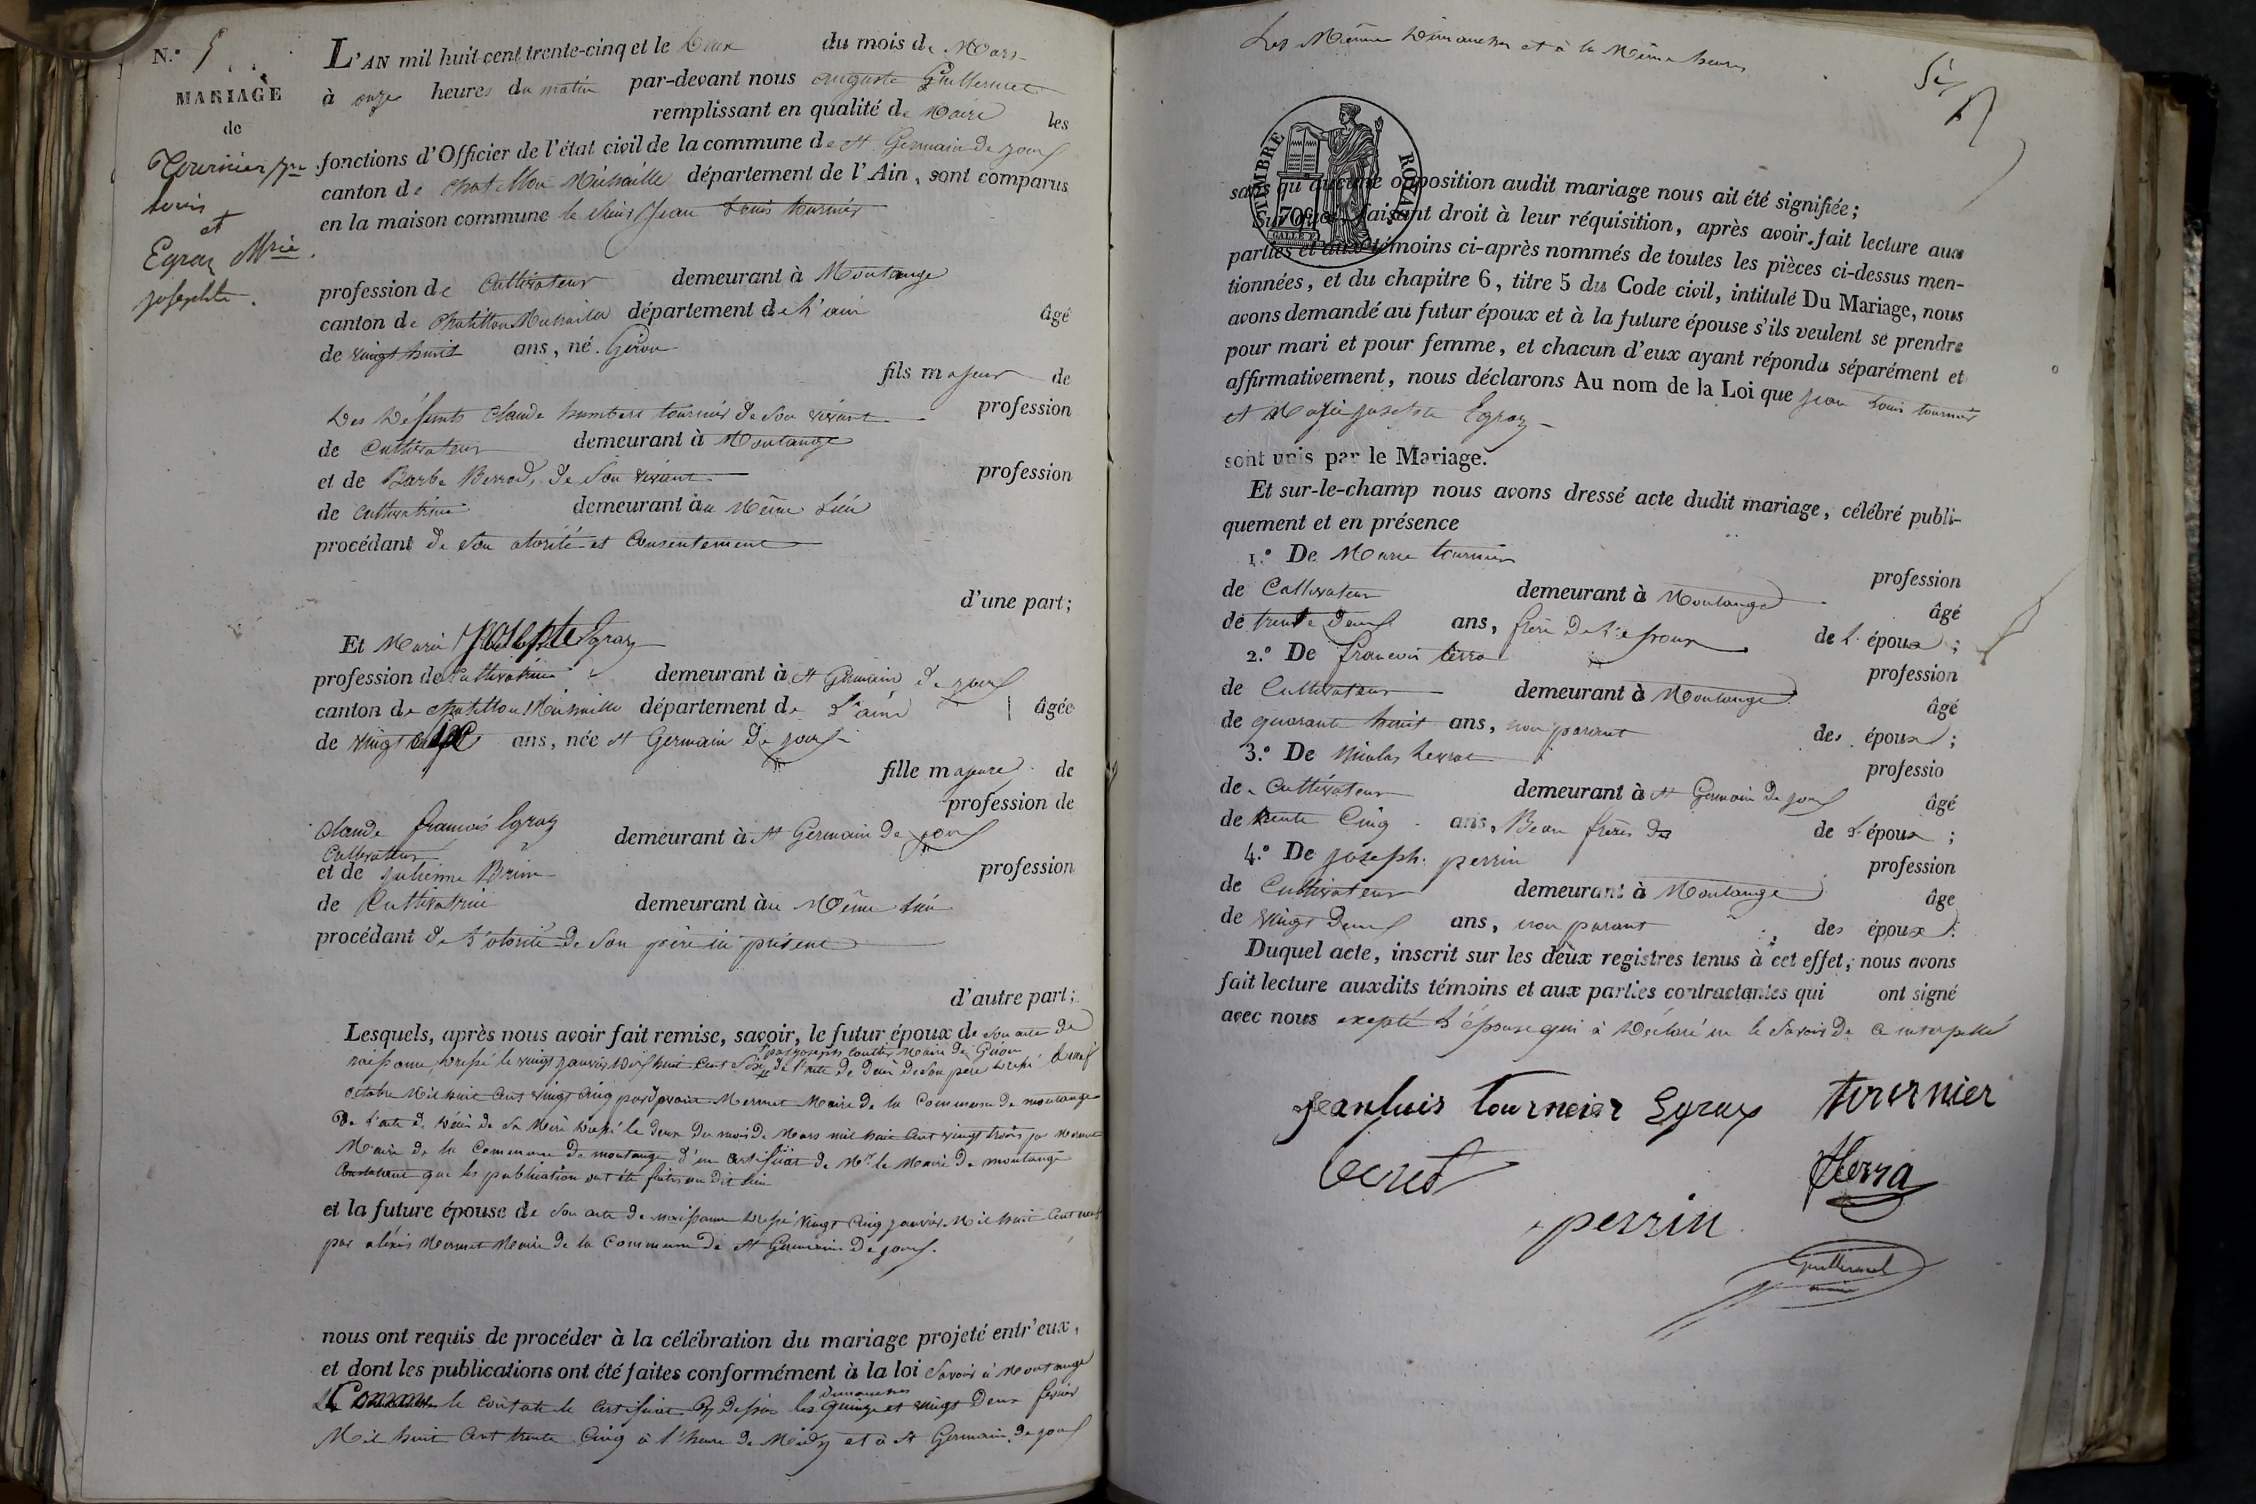 N.° 5
MARIAGE
de
Tournier Jn
Louis
et
Egraz Mrie
josephte.
L'AN mil huit cent trente-cinq et le deux du mois de Mars
à onze heures du matin par-devant nous auguste Guillermet
remplissant en qualité de Maire les
fonctions d'Officier de l'état civil de la commune de st Germain de joux
canton de Chatillon Michaille département de l'Ain, sont comparus
en la maison commune le sieur Jean Louis tournier
profession de Cultivateur demeurant à Montange
canton de Chatillon Michaille département de l'ain âgé
de vingt huit ans, né Giron
fils majeur de
des défunts Claude humbert tournier de son vivant profession
de Cultivateur demeurant à Montange
et de Barbe Berrod, de son vivant profession
de cultivatrice demeurant au Même Lieu
procédant de son otorité et Consentement
d'une part;
Et Marie Josephte Egraz
profession de Cultivatrice demeurant à st Germain de joux
canton de Chatillon Michaille département de L'ain âgée
de vingt ans, née st Germain de joux
fille majeure de
profession de
Claude françois Egraz demeurant à st Germain de joux
Cultivateur
et de julienne Brun profession
de Cultivatrice demeurant au Même Lieu
procédant de L'otorité de son père ici présent
d'autre part;
Lesquels, après nous avoir fait remise, savoir, le futur époux de son acte de
par joseph Maire de Giron
naissance dressé le vingt janvier Mil huit Cent Sept de l'acte de décès de son père dressé le neuf
octobre Mil huit Cent vingt Cinq par Mermet Maire de la Commune de montange
De l'acte de décès de sa Mère dressé le deux du mois de Mars mil huit Cent vingt trois par Mermet
Maire de la Commune de montange d'un Certificat de Mr le Maire de montange
Constatant que les publication ont été faites au dit lieu
et la future épouse de son acte de naissance dressé vingt Cinq janvier Mil huit Cent neuf
par aléxis Mermet Maire de la Commune de st Germain de joux.
nous ont requis de procéder à la célébration du mariage projeté entr'eux,
et dont les publications ont été faites conformément à la loi savoir à Montange
dimanches
Comme le constate le Certificat Cy dessus les quinze et vingt Deux février
Mil huit Cent trente Cinq à l'heure de Midy et à st Germain de joux
Les Mêmes Dimanches et à la Même heure
sans qu'aucune opposition audit mariage nous ait été signifiée;
TIMBRE ROYAL
70c
Sur quoi, faisant droit à leur réquisition, après avoir fait lecture aux
parties et aux témoins ci-après nommés de toutes les pièces ci-dessus men-
tionnées, et du chapitre 6, titre 5 du Code civil, intitulé Du Mariage, nous
avons demandé au futur époux et à la future épouse s'ils veulent se prendre
pour mari et pour femme, et chacun d'eux ayant répondu séparément et
affirmativement, nous déclarons Au nom de la Loi que jean Louis tournier
et Marie josephte Egraz
sont unis par le Mariage.
Et sur-le-champ nous avons dressé acte dudit mariage, célébré publi-
quement et en présence
1.° De Marie tournier
profession
de Cultivateur demeurant à Montange âgé
de trente deux ans, frère de l'epoux de l'époux;
2.° De françois terra profession
de Cultivateur demeurant à Montange âgé
de quarante huit ans, non parant des époux;
3.° De Nicolas Levrat professio
de Cultivateur demeurant à st Germain de joux âgé
de trente Cinq ans, Beau frère de de L'époux;
4.° De joseph perrin profession
de Cultivateur demeurant à Montange âge
de vingt Deux ans, non parant des époux.
Duquel acte, inscrit sur les deux registres tenus à cet effet, nous avons
fait lecture auxdits témoins et aux parties contractantes qui ont signé
avec nous excepté L'épouse qui à Déclaré ne le savoir de ce interpellé
jeanluis tourneier Egraz tournier
terra
perrin
Guillermet